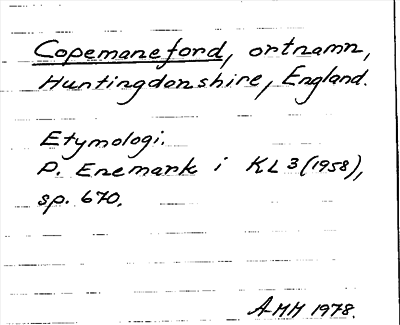 Copemaneford, ortnamn,
Huntingdonshire, England.
Etymologi.
P. Enemark i KL 3 (1958),
sp. 670.
AMH 1978.